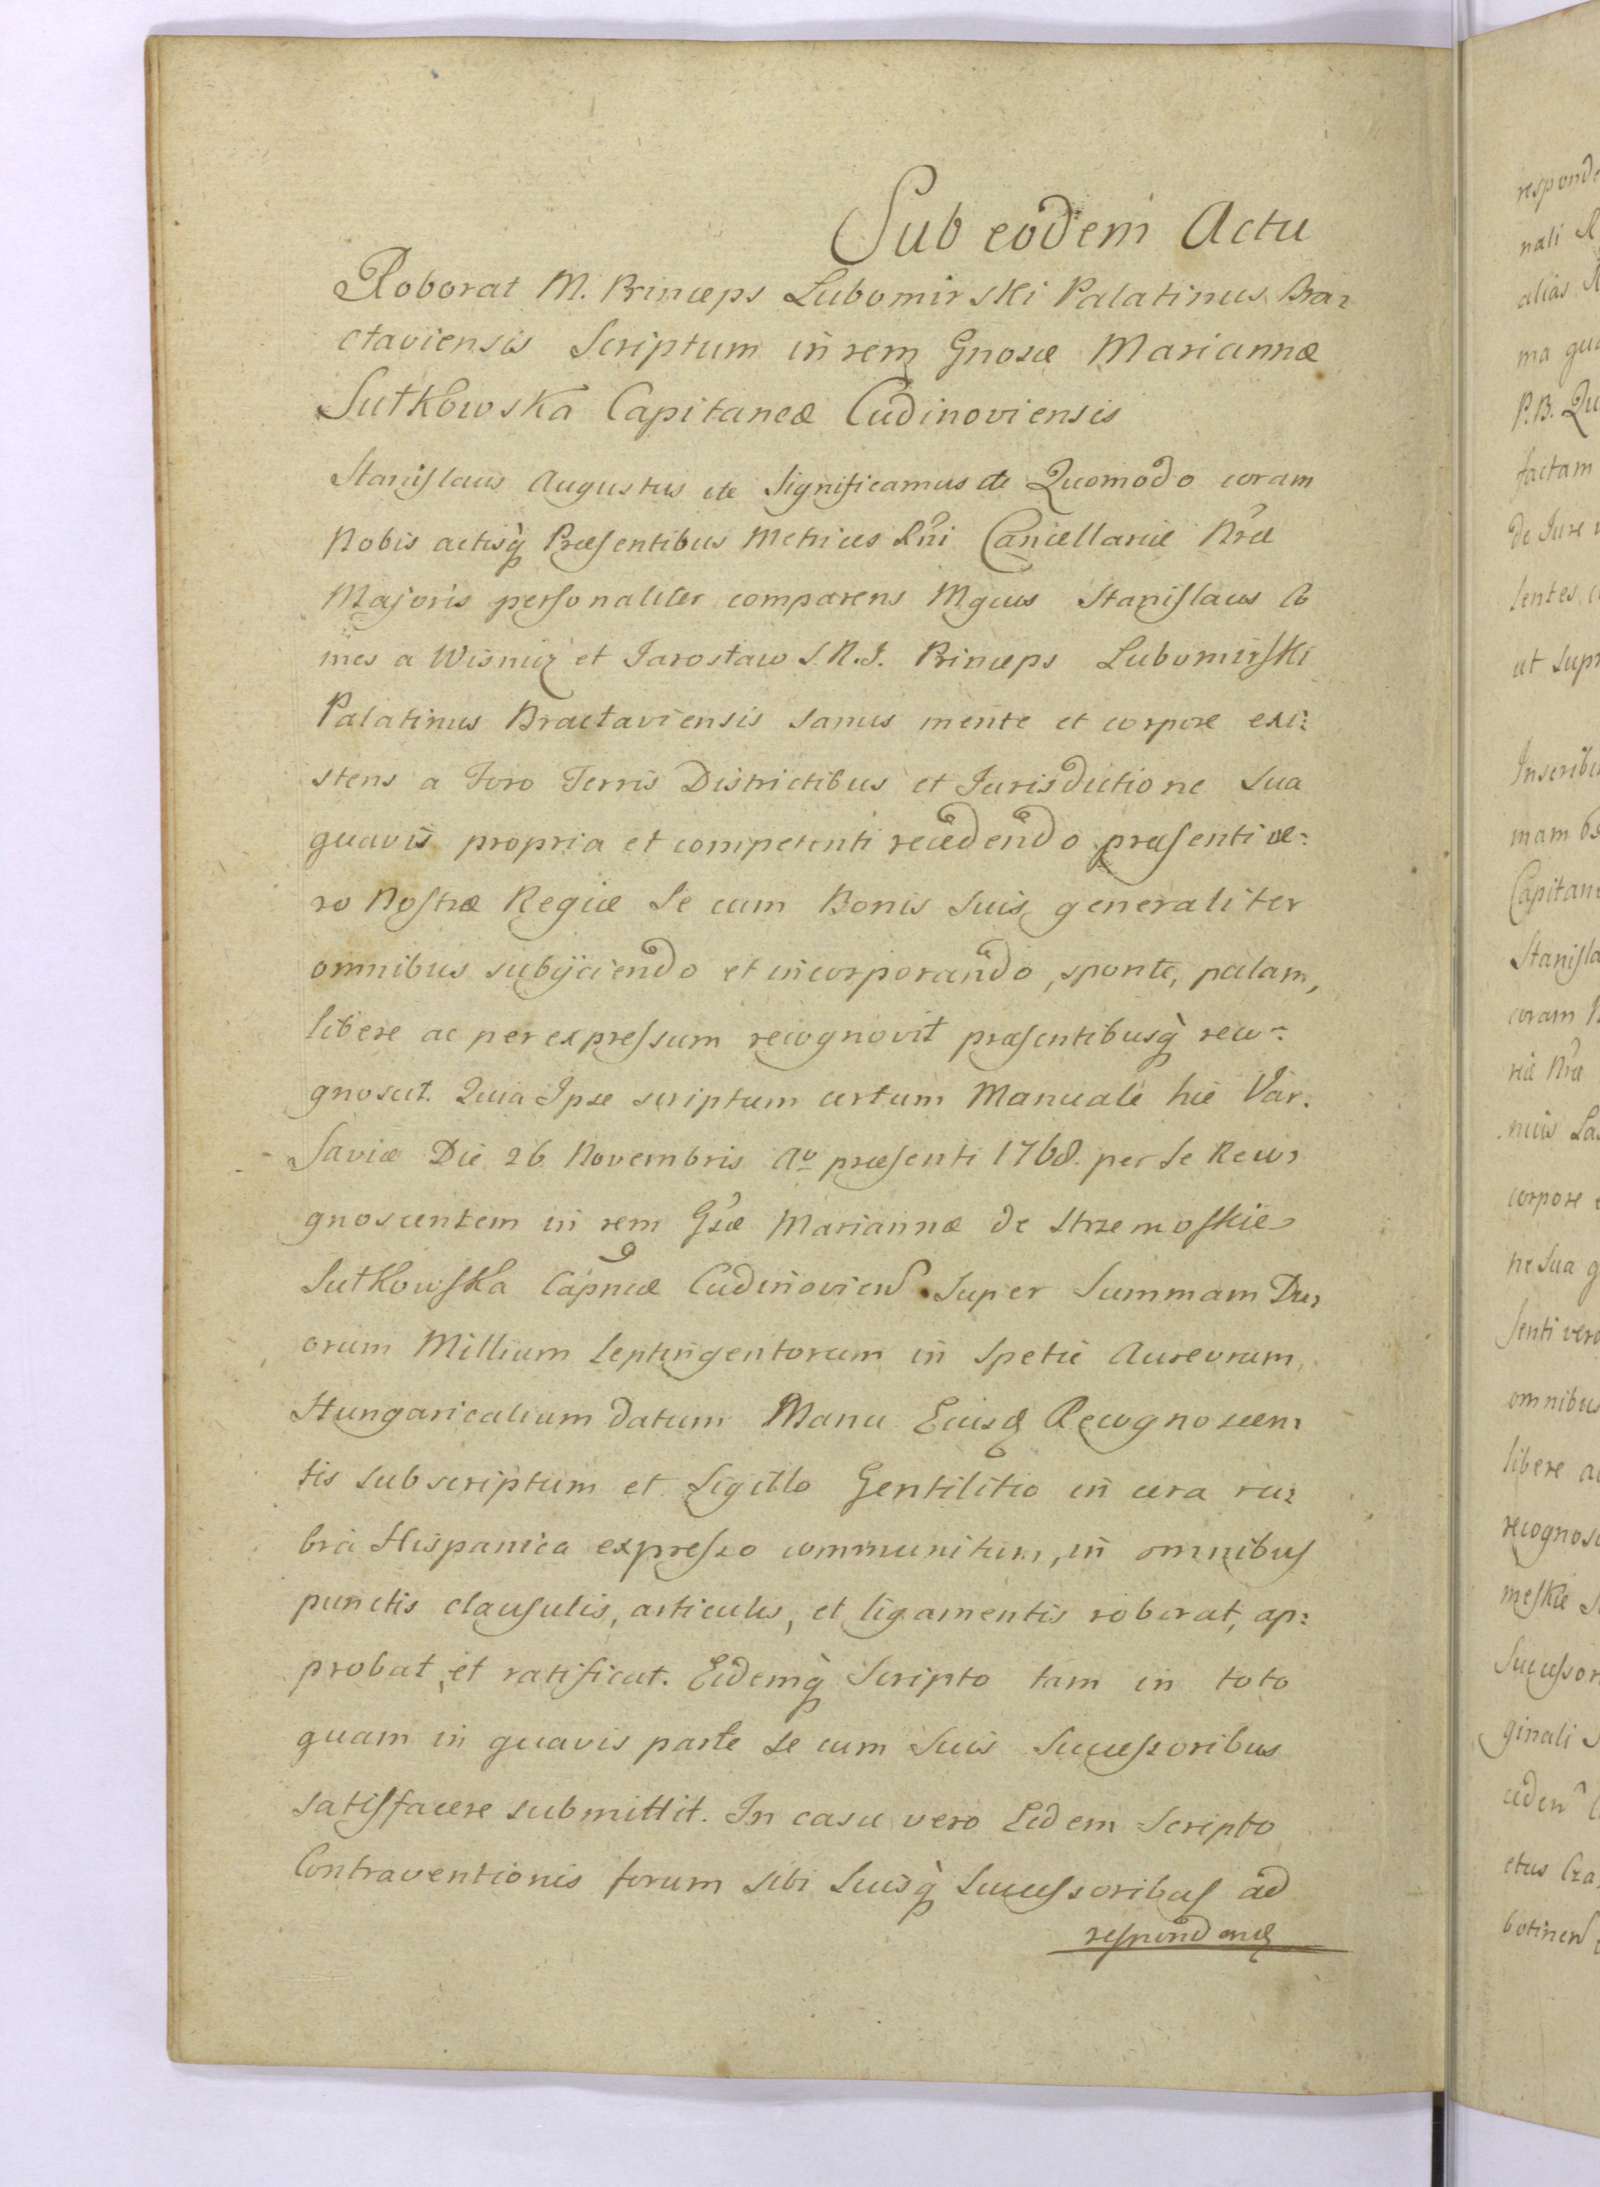 Sub eodem Actu
Roborat M. Princeps Lubomirski Palatinus Bra=
ctaviensis Scriptum in rem Gnosæ Mariannæ
Sutkowska Capitaneæ Cudinoviensis
Stanislaus Augustus etc Significamus etc Quomodo coram
Nobis actisq̀ Præsentibus Metrices Rni Cancellariæ Nræ
Majoris personaliter comparens Mgcus Stanislaus Co
mes a Wisnicz et Jarosław S.R.J. Princeps Lubomirski
Palatinus Bractaviensis sanus mente et corpore exi=
stens a Foro Terris Districtibus et Jurisdictione sua
quavis propria et competenti recedendo præsenti ve=
ro Nostræ Regiæ Se cum Bonis Suis generaliter
omnibus subijciendo et incorporando, sponte, palam,
libere ac per expressum recognovit præsentibusq̀ reco=
gnoscit. Quia Ipse scriptum certum Manuale hic Var=
saviæ Die 26 Novembris Ao præsenti 1768. per Se Reco=
gnoscentem in rem Gsæ Mariannæ de Strzemoskie
Sutkowska Capneæ Cudinovien Super Summam Du=
orum Millium Septingentorum in Spetie Aureorum
Hungaricalium datum Manu Eiusd Recognoscen=
tis subscriptum et Sigillo Gentilitio in cera ru=
bra Hispanica expresso communitum, in omnibus
punctis clausulis, articulis, et ligamentis roborat, ap=
probat, et ratificat. Eidemq̀ Scripto tam in toto
quam in quavis parte se cum Suis Successoribus
satisfacere submittit. In casu vero Eidem Scripto
Contraventionis forum sibi Suisq̀ Successoribus ad
respond end
responde
nali
alias
ma
P.B.
factam
de Jure
lentes
ut supr
Inscribi
mam
Capitan
Stanisla
coram
riæ Nræ
corpore
ne Sua
senti vero
omnibus
libere
recognos
meskie
Successor
ginali
etus